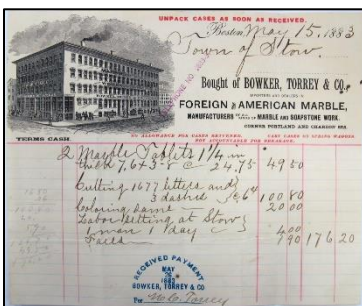 UNPACK CASES AS SOON AS RECEIVED.
Boston May 15, 1883
Town of Stow.
Bought of BOWKER, TORREY & CO.
IMPORTERS AND DEALERS IN
FOREIGN AND AMERICAN MARBLE,
MANUFACTURERS OF ALL KINDS OF MARBLE AND SOAPSTONE WORK.
CORNER PORTLAND AND CHARDON STS.
TERMS CASH.
NO ALLOWANCE FOR CASES RETURNED.
NOT ACCOUNTABLE FOR BREAKAGE.
2 Marble Tablets 1 1/4 in
thick 24.75 49 50
Cutting 1677 letters and
3 dashes 6¢ 100 80
Coloring same 20 00
Labor setting at Stow
1 man 1 day 4 00
1 90 176 20
RECEIVED PAYMENT
MAY
1883
BOWKER, TORREY & CO
Per
Torrey